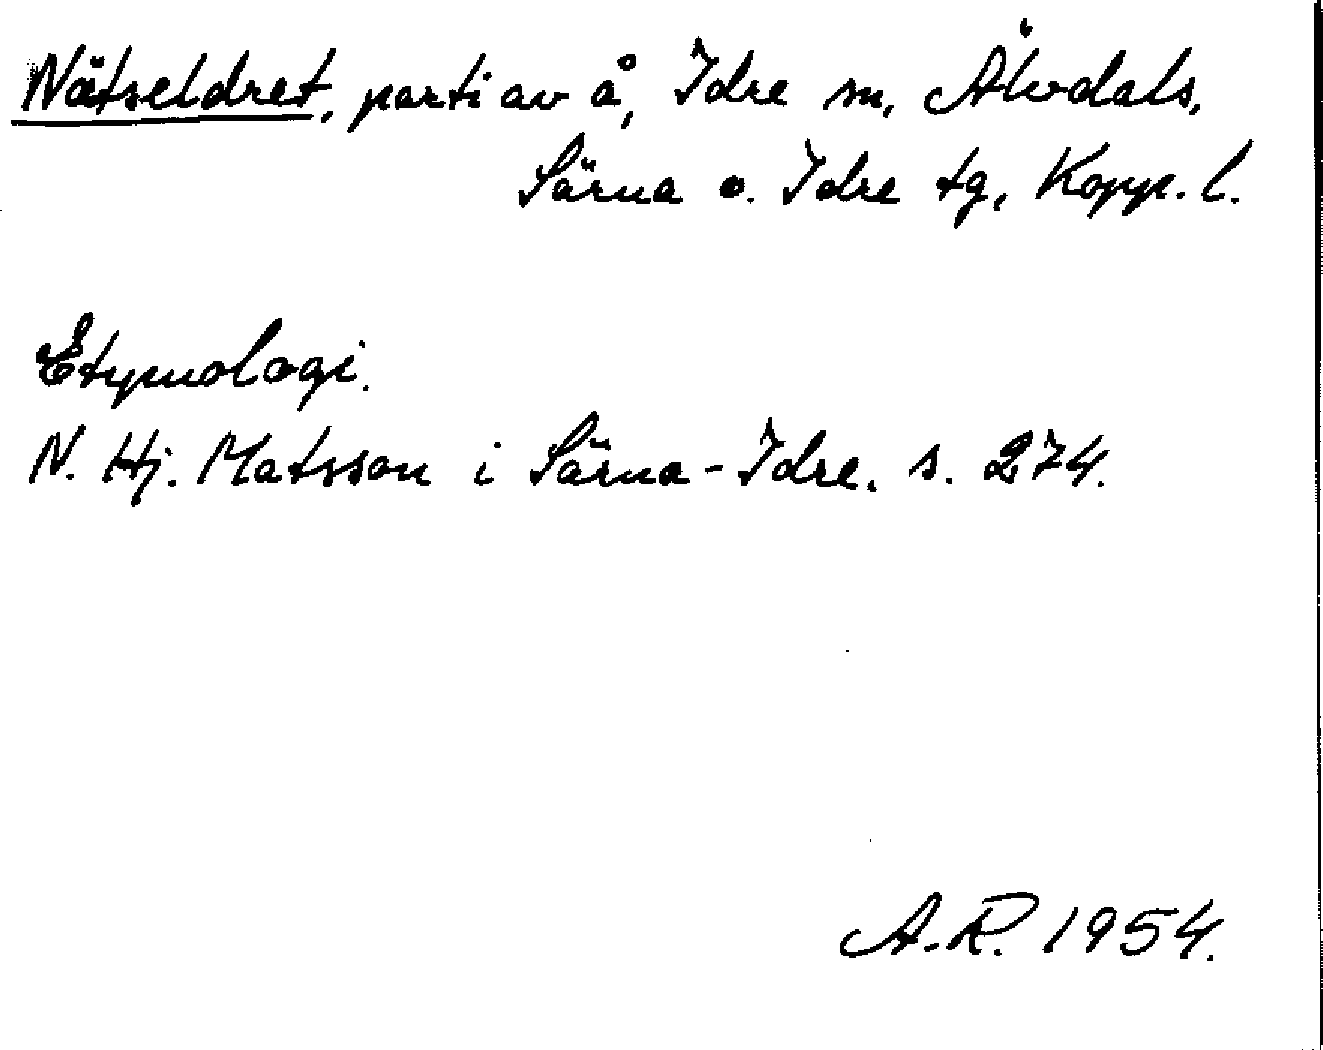 Nätseldret, parti av å, Idre sn, Älvdals,
Särna o. Idre tg, Kopp. l.
Etymologi.
N. Hj. Matsson i Särna-Idre. s. 274.
A.R. 1954.